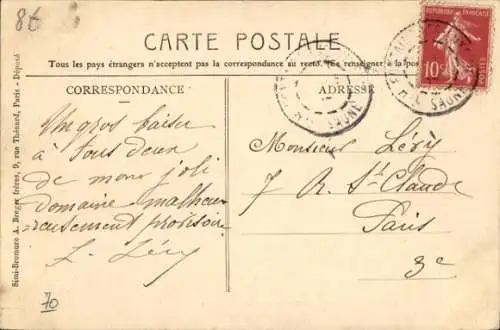 86
CARTE POSTALE
Tous les pays étrangers n'acceptent pas la correspondance au recto. (Se renseigner à la poste
CORRESPONDANCE
ADRESSE
RÉPUBLIQUE FRANÇAISE
10c
POSTES
SAÔNE
SAÔNE
Un gros baiser
à tous deux
de mon joli
domaine malheu-
reusement provisoire
L. Léry
Monsieur Léry
7 R. St Claude
Paris
3e
70
Simi-Bromure A. Breger frères, 9, rue Thénard, Paris - Déposé